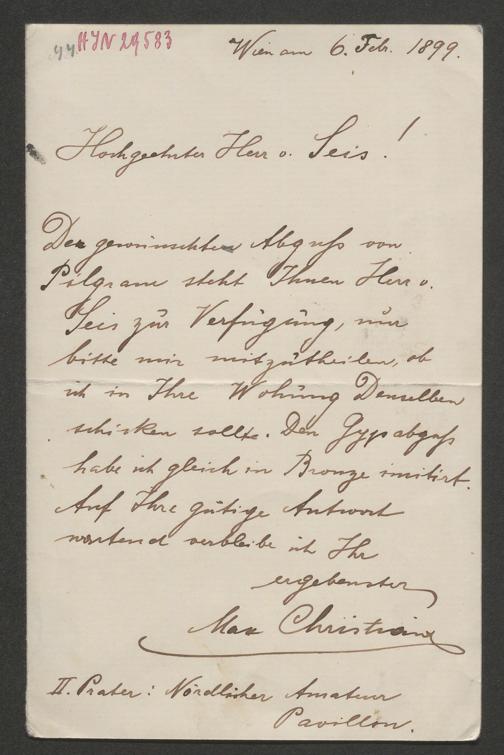 44 HIN 29583
Wien am 6. Feb. 1899.
Hochgeehrter Herr v. Seis!
Den gewünschten Abguß von
Pilgram steht Ihnen Herr v.
Seis zür Verfügüng, nür
bitte mir mitzütheilen, ob
ich in Ihre Wohüng Denselben
schicken sollte. Den Gypsabguß
habe ich gleich in Bronze imitirt.
Auf Ihre gütige Antwort
wartend verbleibe ich Ihr
ergebenster
Max Christian
II. Prater: Nördlicher Amateur
Pavillon.